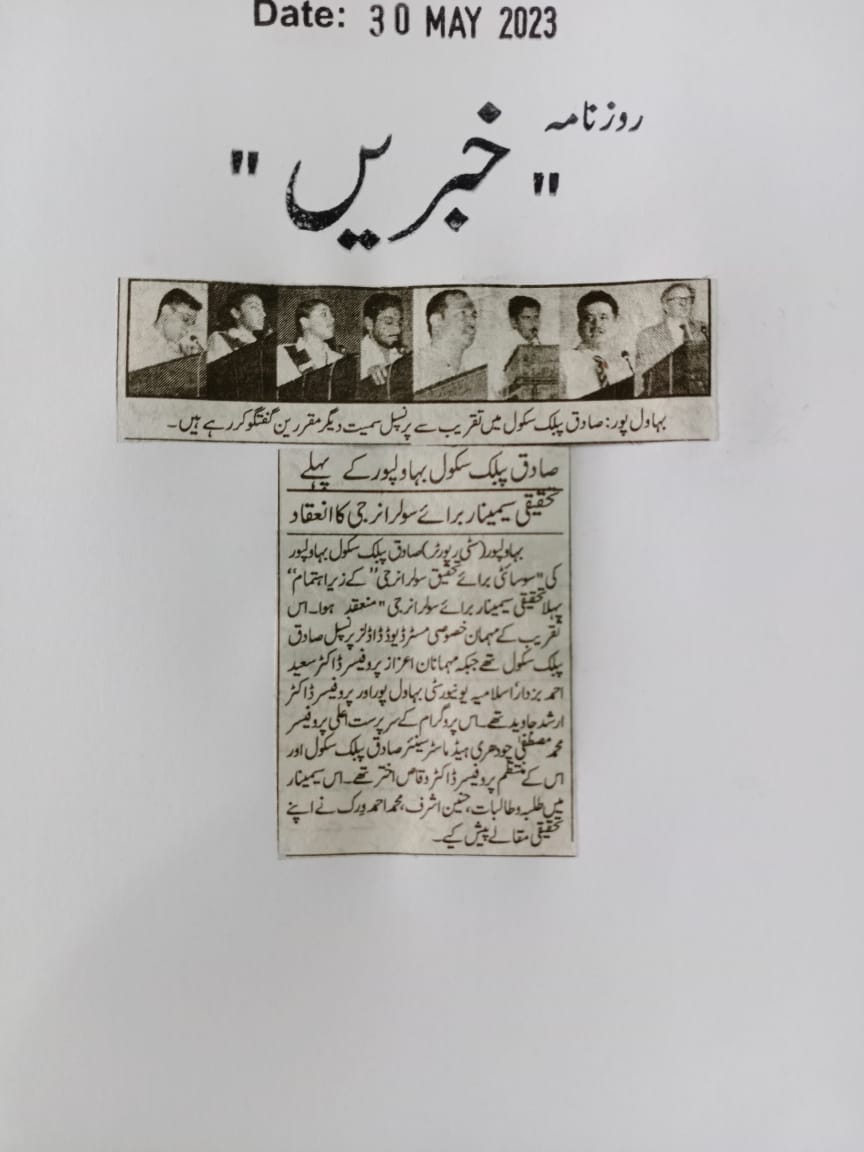 Date: 30 MAY 2023
روزنامہ
"خبریں"
بہاول پور: صادق پبلک سکول میں تقریب سے پرنسپل سمیت دیگر مقررین گفتگو کر رہے ہیں۔
صادق پبلک سکول بہاولپور کے پہلے
تحقیقی سیمینار برائے سولر انرجی کا انعقاد
بہاولپور (سٹی رپورٹر) صادق پبلک سکول بہاولپور
کی "سوسائٹی برائے تحقیق سولر انرجی" کے زیر اہتمام"
پہلا تحقیقی سیمینار برائے سولر انرجی" منعقد ہوا۔ اس
تقریب کے مہمان خصوصی مسٹر ڈیوڈ ڈاؤلز پرنسپل صادق
پبلک سکول تھے جبکہ مہمانان اعزاز پروفیسر ڈاکٹر سعید
احمد بزدار اسلامیہ یونیورسٹی بہاول پور اور پروفیسر ڈاکٹر
ارشد جاوید تھے۔ اس پروگرام کے سرپرست اعلی پروفیسر
محمد مصطفیٰ چودھری ہیڈ ماسٹر سینئر صادق پبلک سکول اور
اس کے منتظم پروفیسر ڈاکٹر وقاص اختر تھے۔ اس سیمینار
میں طلبہ و طالبات، حسنین اشرف، محمد احمد ورک نے اپنے
تحقیقی مقالے پیش کیے۔